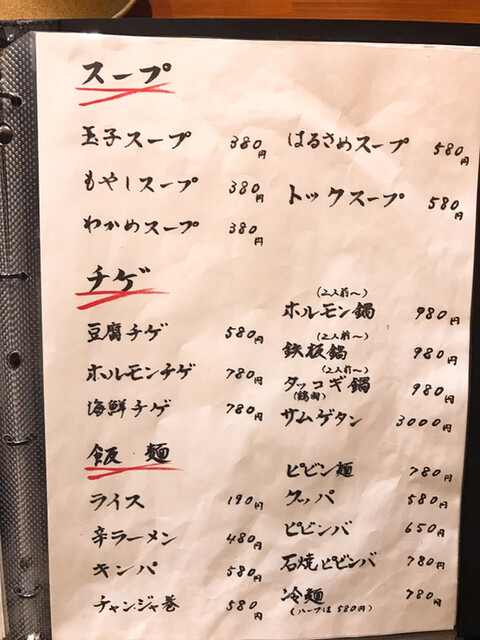 スープ
玉子スープ 380円
もやしスープ 380円
わかめスープ 380円
はるさめスープ 580円
トックスープ 580円
チゲ
豆腐チゲ 580円
ホルモンチゲ 780円
海鮮チゲ 780円
(2人前〜)
ホルモン鍋 980円
(2人前〜)
鉄板鍋 980円
(2人前〜)
タッコギ鍋 980円
(鶏肉)
サムゲタン 3000円
飯・麺
ライス 190円
辛ラーメン 480円
キンパ 580円
チャンジャ巻 580円
ピビン麺 780円
クッパ 580円
ピビンバ 650円
石焼ピビンバ 780円
冷麺 780円
(ハーフは580円)